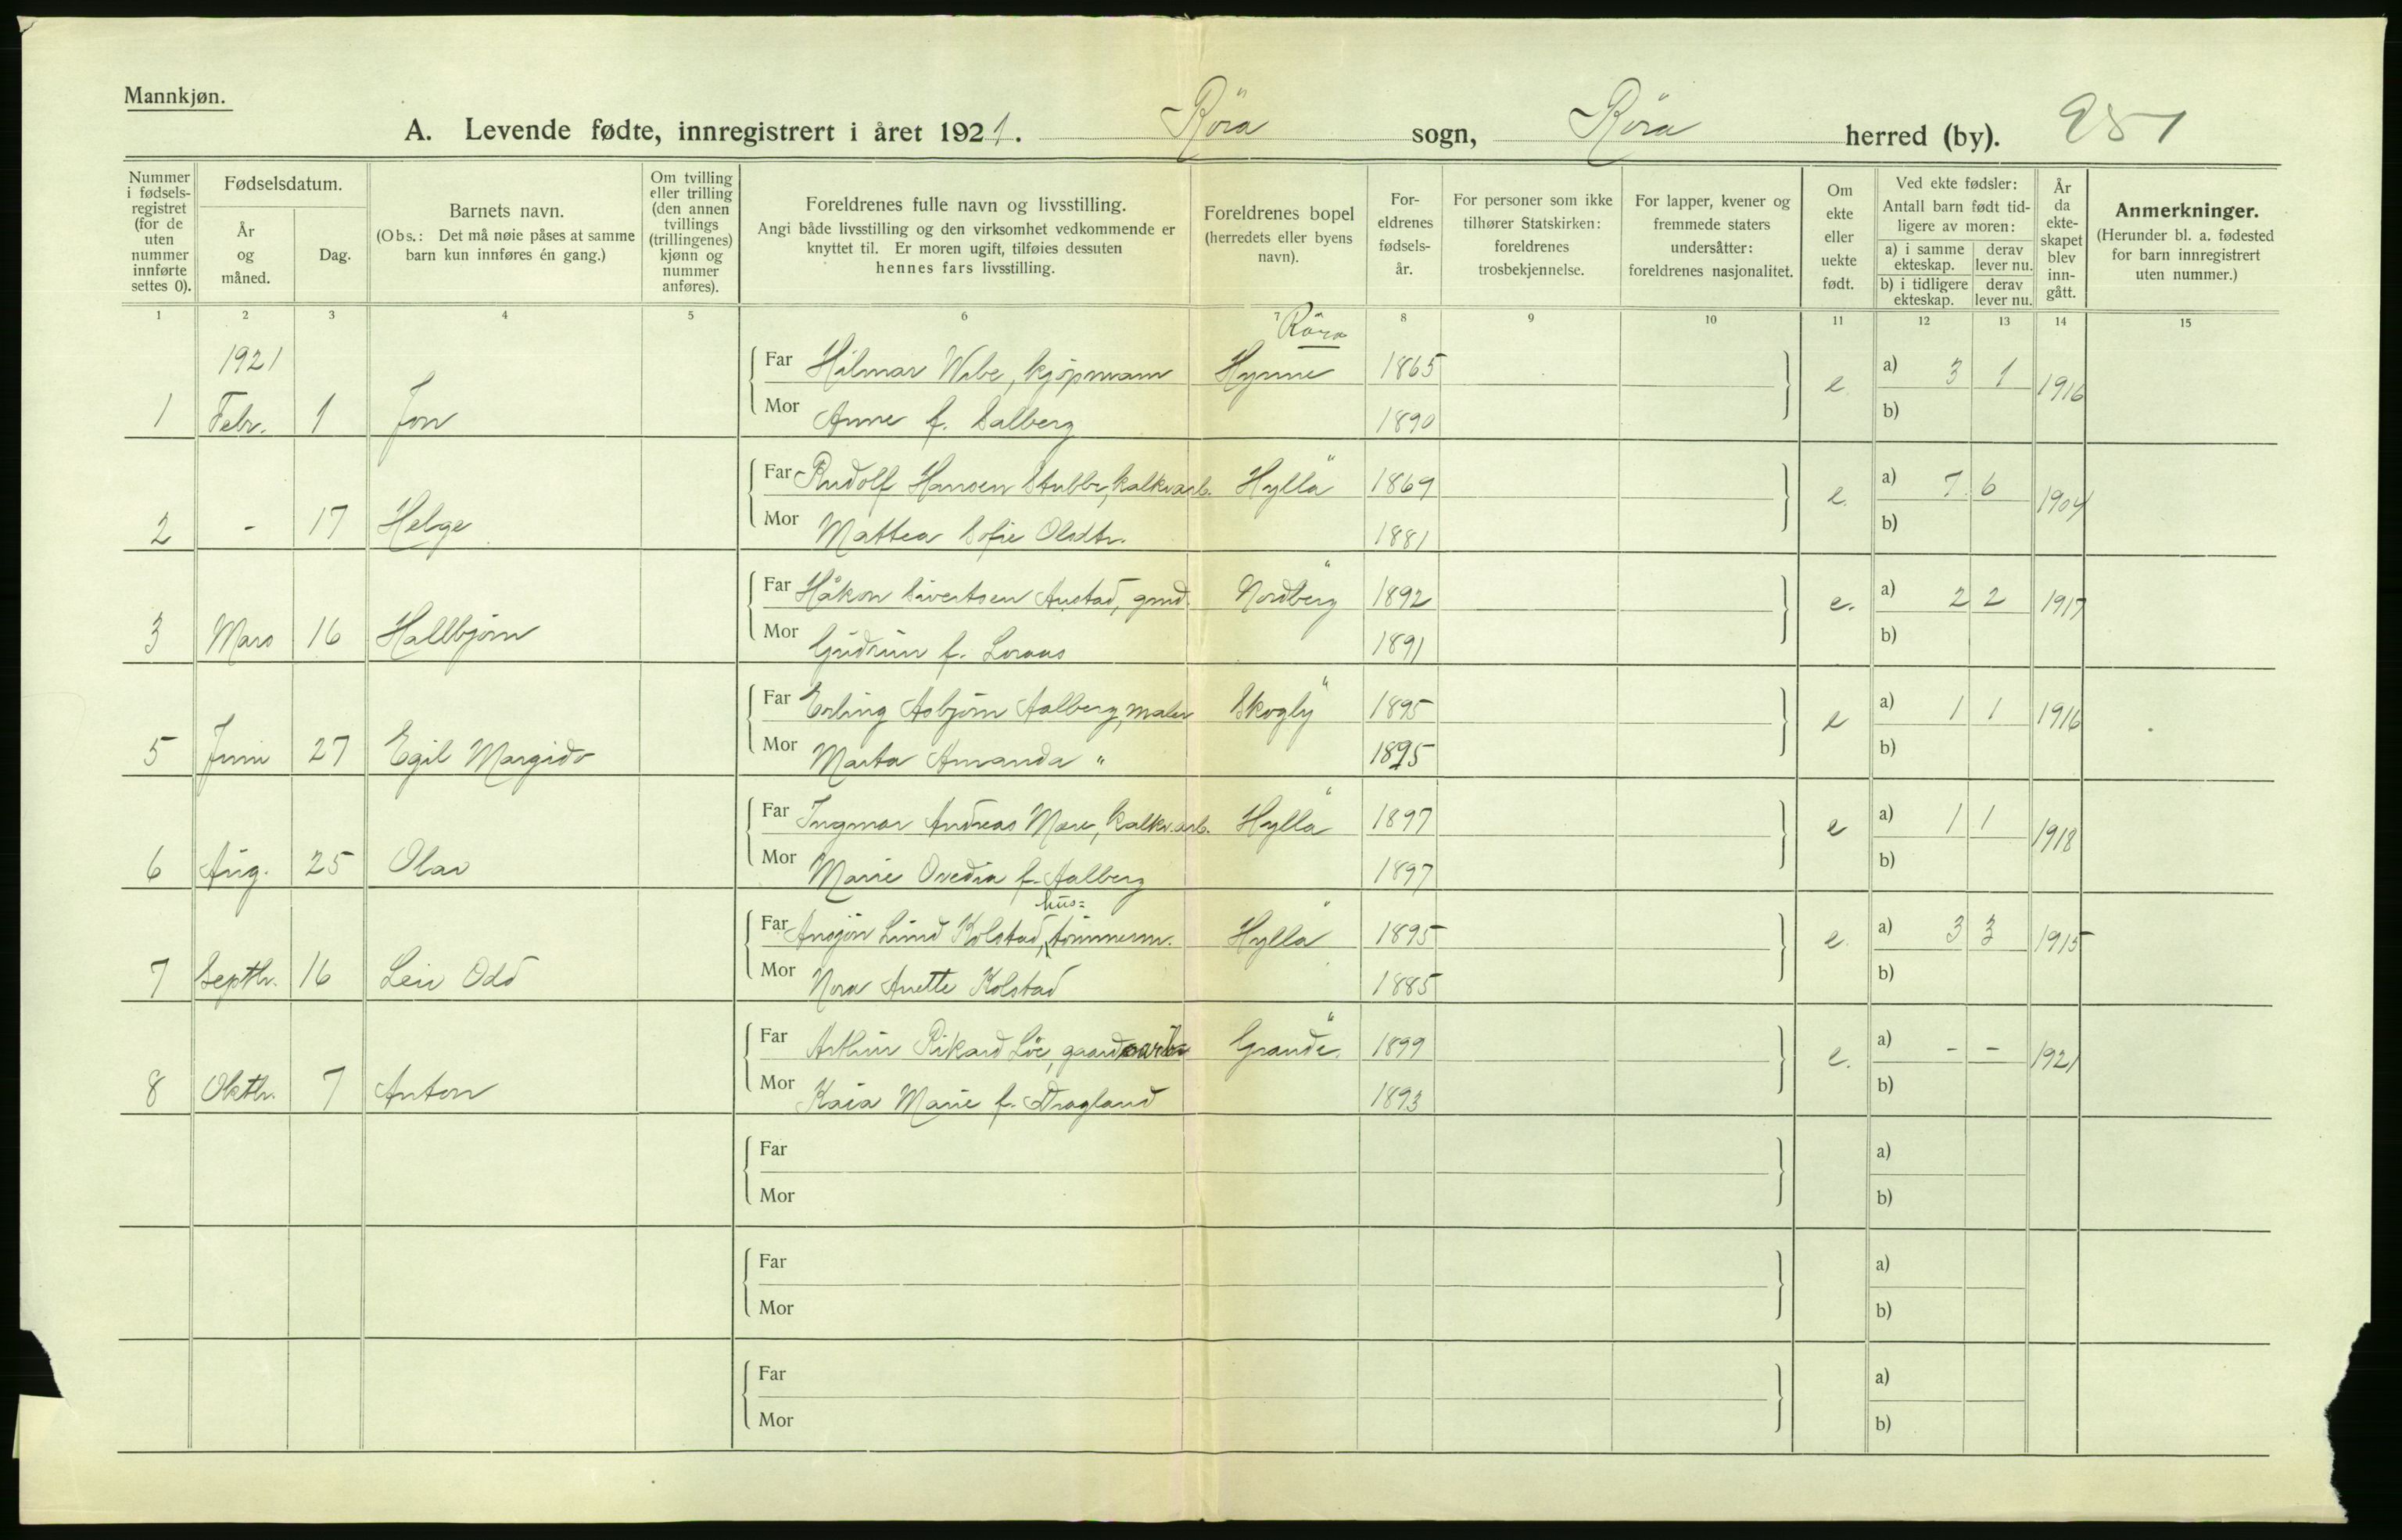 Mannkjøn.
A. Levende fødte, innregistrert i året 1921. Röra sogn, Röra herred (by). 951
Nummer i fødsels-registret (for de uten nummer innførte settes 0).
Fødselsdatum.
År og måned.
Dag.
Barnets navn.
(Obs.: Det må nøie påses at samme barn kun innføres én gang.)
Om tvilling eller trilling (den annen tvillings (trillingenes) kjønn og nummer anføres).
Foreldrenes fulle navn og livsstilling.
Angi både livsstilling og den virksomhet vedkommende er knyttet til. Er moren ugift, tilføies dessuten hennes fars livsstilling.
Foreldrenes bopel (herredets eller byens navn).
For-eldrenes fødsels-år.
For personer som ikke tilhører Statskirken: foreldrenes trosbekjennelse.
For lapper, kvener og fremmede staters undersåtter: foreldrenes nasjonalitet.
Om ekte eller uekte født.
Ved ekte fødsler: Antall barn født tid-ligere av moren:
a) i samme ekteskap. derav lever nu.
b) i tidligere ekteskap. derav lever nu.
År da ekte-skapet blev inn-gått.
Anmerkninger.
(Herunder bl. a. fødested for barn innregistrert uten nummer.)
1 2 3 4 5 6 7 8 9 10 11 12 13 14 15
Röra
1921
Far Hilmar Wibe, kjöpmann Hynne 1865 e. a) 3 1 1916
1 Febr. 1 Jon Mor Anne f. Salberg 1890 b)
Far Rudolf Hansen Stubbe, kalkv.arb. Hylla " 1869 e. a) 7 6 1904
2 - 17 Helge Mor Mattea Sofie Olsdtr. 1881 b)
Far Håkon Sivertsen Austad, gmd. Nordberg " 1892 e. a) 2 2 1917
3 Mars 16 Hallbjörn Mor Gudrun f. Loraas 1891 b)
Far Erling Asbjörn Aalberg, maler Skogly " 1895 e a) 1 1 1916
5 Juni 27 Egil Margido Mor Marta Amanda " 1895 b)
Far Ingmar Andreas Mære, kalkv.arb. Hylla " 1897 e a) 1 1 1918
6 Aug. 25 Olav Mor Marie Ovedia f. Aalberg 1897 b)
hus=
Far Ansjön Lund Kolstad, tömmerm. Hylla " 1895 e. a) 3 3 1915
7 Septbr. 16 Leiv Odd Mor Nora Anette Kolstad 1885 b)
Far Arthur Rikard Löe, gaardsarb. Grande " 1899 e. a) - - 1921
8 Oktbr. 7 Anton Mor Kaia Marie f. Dragland 1893 b)
Far a)
Mor b)
Far a)
Mor b)
Far a)
Mor b)